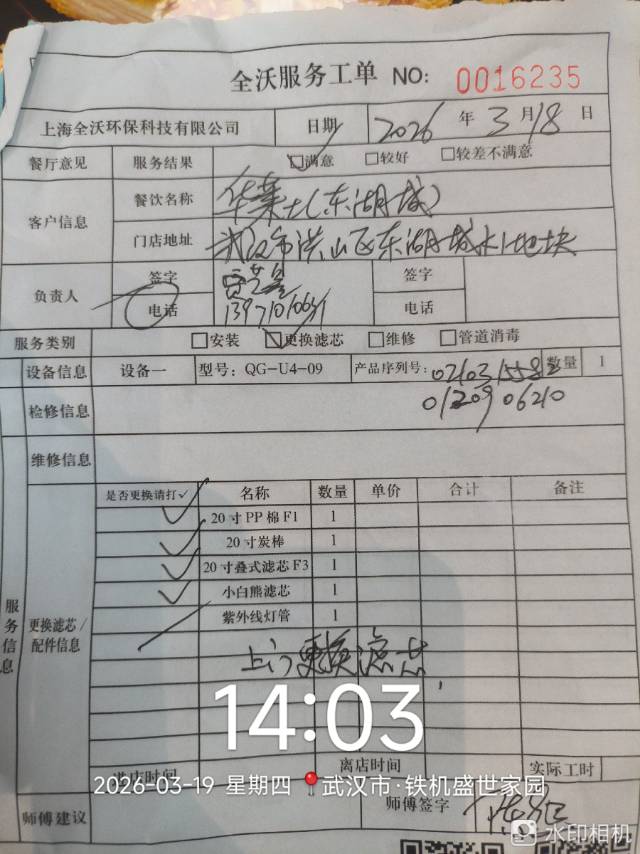 全沃服务工单 NO: 0016235
上海全沃环保科技有限公司 日期 2026 年 3 月 18 日
餐厅意见 服务结果 ☑满意 □较好 □较差不满意
客户信息 餐饮名称 华莱士(东湖城)
门店地址 武汉市洪山区东湖城K1地块
负责人 签字 签字
电话 电话
服务类别 □安装 ☑更换滤芯 □维修 □管道消毒
设备信息 设备一 型号: QG-U4-09 产品序列号: 数量 1
01209 06210
检修信息
维修信息
服务信息 更换滤芯/配件信息
是否更换请打✓ 名称 数量 单价 合计 备注
✓ 20寸PP棉F1 1
✓ 20寸炭棒 1
✓ 20寸叠式滤芯F3 1
✓ 小白熊滤芯 1
紫外线灯管 1
上门更换滤芯
14:03
进店时间 离店时间 实际工时
2026-03-19 星期四 武汉市·铁机盛世家园
师傅建议 师傅签字
水印相机